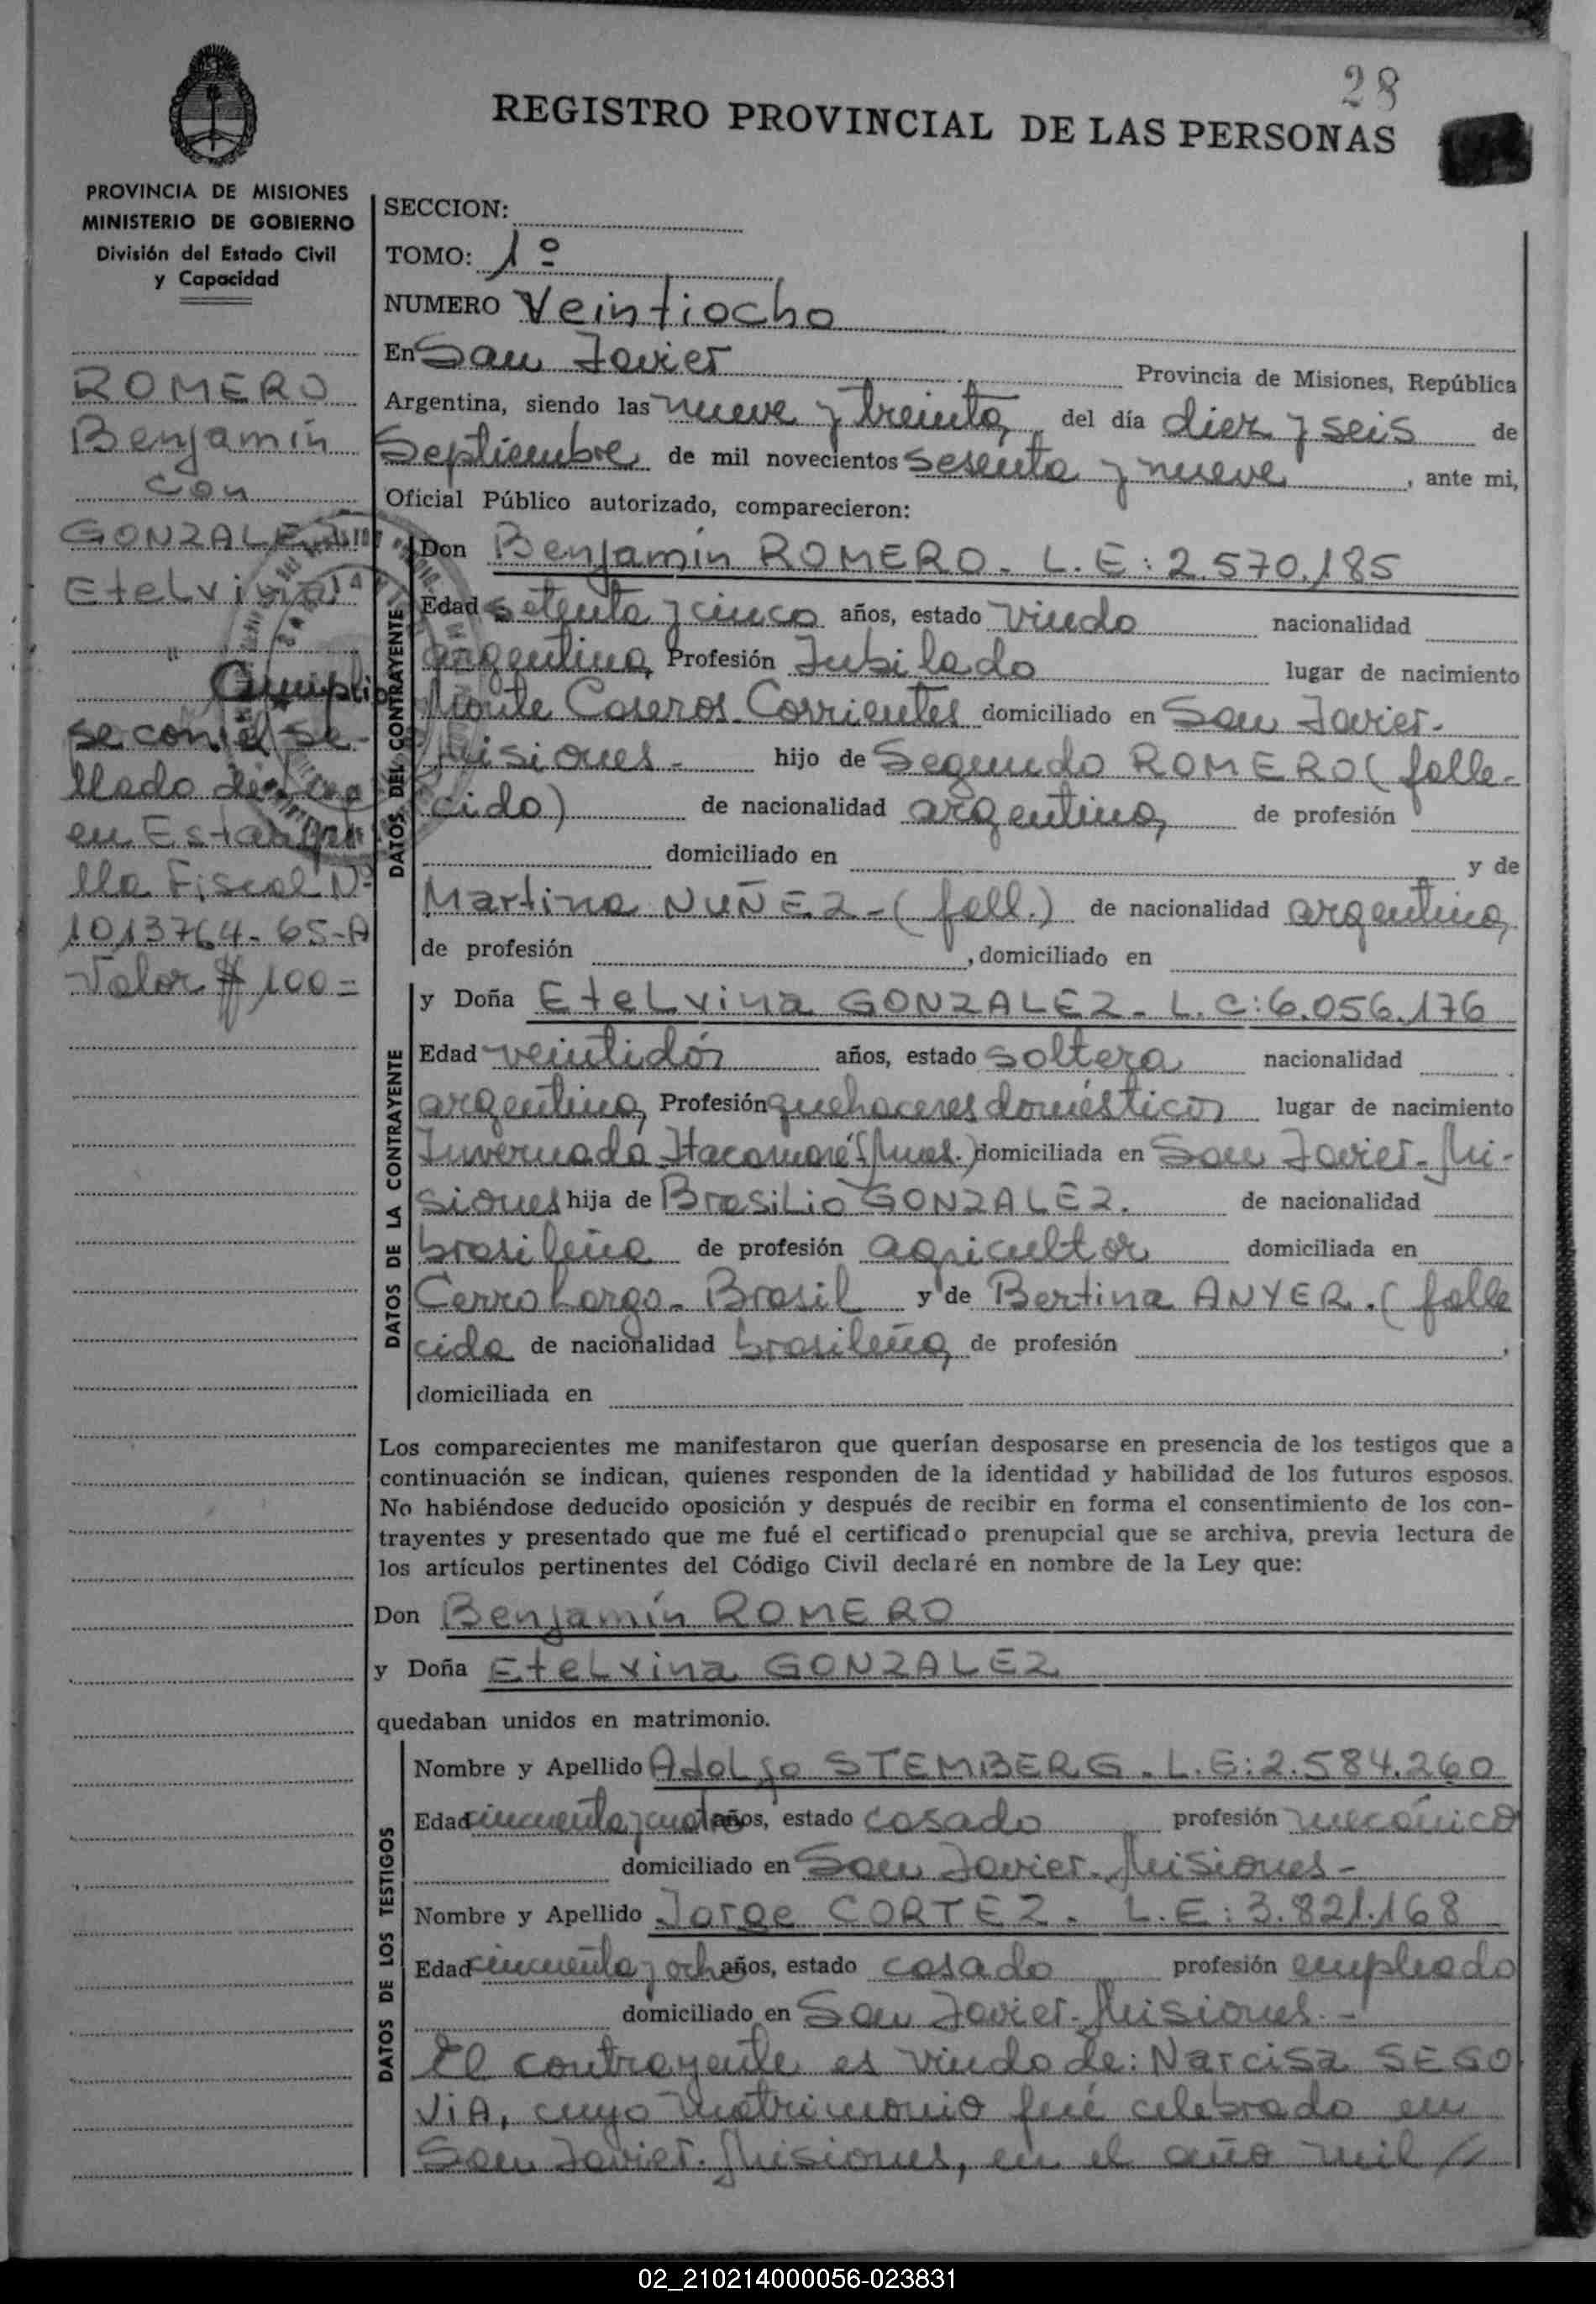 28
REGISTRO PROVINCIAL DE LAS PERSONAS
PROVINCIA DE MISIONES
MINISTERIO DE GOBIERNO
División del Estado Civil
y Capacidad
ROMERO
Benjamín
con
GONZALEZ
Etelvina
Cumplió
se con el se-
llado de Ley
en Estampi
lla Fiscal Nº
1013764-65-A
Valor $ 100=
SECCION:
TOMO: 1º
NUMERO Veintiocho
En San Javier Provincia de Misiones, República
Argentina, siendo las nueve y treinta, del día diez y seis de
Septiembre de mil novecientos sesenta y nueve, ante mi,
Oficial Público autorizado, comparecieron:
DATOS DEL CONTRAYENTE
Don Benjamín ROMERO. L.E: 2.570.185
Edad setenta y cinco años, estado Viudo nacionalidad
argentina, Profesión Jubilado lugar de nacimiento
Monte Caseros Corrientes domiciliado en San Javier-
Misiones- hijo de Segundo ROMERO (falle-
cido) de nacionalidad argentina, de profesión
domiciliado en y de
Martina NUÑEZ-(fall.) de nacionalidad argentina,
de profesión , domiciliado en
DATOS DE LA CONTRAYENTE
y Doña Etelvina GONZALEZ. L.C: 6.056.176
Edad veintidós años, estado soltera nacionalidad
argentina, Profesión quehaceres domésticos lugar de nacimiento
Invernada Itacaruaré (Mnes.) domiciliada en San Javier-Mi-
siones hija de Brasilio GONZALEZ. de nacionalidad
brasileña de profesión agricultor domiciliada en
Cerro Largo- Brasil y de Bertina ANYER. (falle
cida de nacionalidad brasileña, de profesión ,
domiciliada en
Los comparecientes me manifestaron que querían desposarse en presencia de los testigos que a
continuación se indican, quienes responden de la identidad y habilidad de los futuros esposos.
No habiéndose deducido oposición y después de recibir en forma el consentimiento de los con-
trayentes y presentado que me fué el certificado prenupcial que se archiva, previa lectura de
los artículos pertinentes del Código Civil declaré en nombre de la Ley que:
Don Benjamín ROMERO
y Doña Etelvina GONZALEZ
quedaban unidos en matrimonio.
DATOS DE LOS TESTIGOS
Nombre y Apellido Adolfo STEMBERG. L.E: 2.584.260
Edad cincuenta y cuatro años, estado casado profesión mecánico
domiciliado en San Javier-Misiones-
Nombre y Apellido Jorge CORTEZ. L.E: 3.821.168
Edad cincuenta y ocho años, estado casado profesión empleado
domiciliado en San Javier-Misiones.-
El contrayente es viudo de: Narcisa SEGO
VIA, cuyo matrimonio fué celebrado en
San Javier-Misiones, en el año mil //
02_210214000056-023831